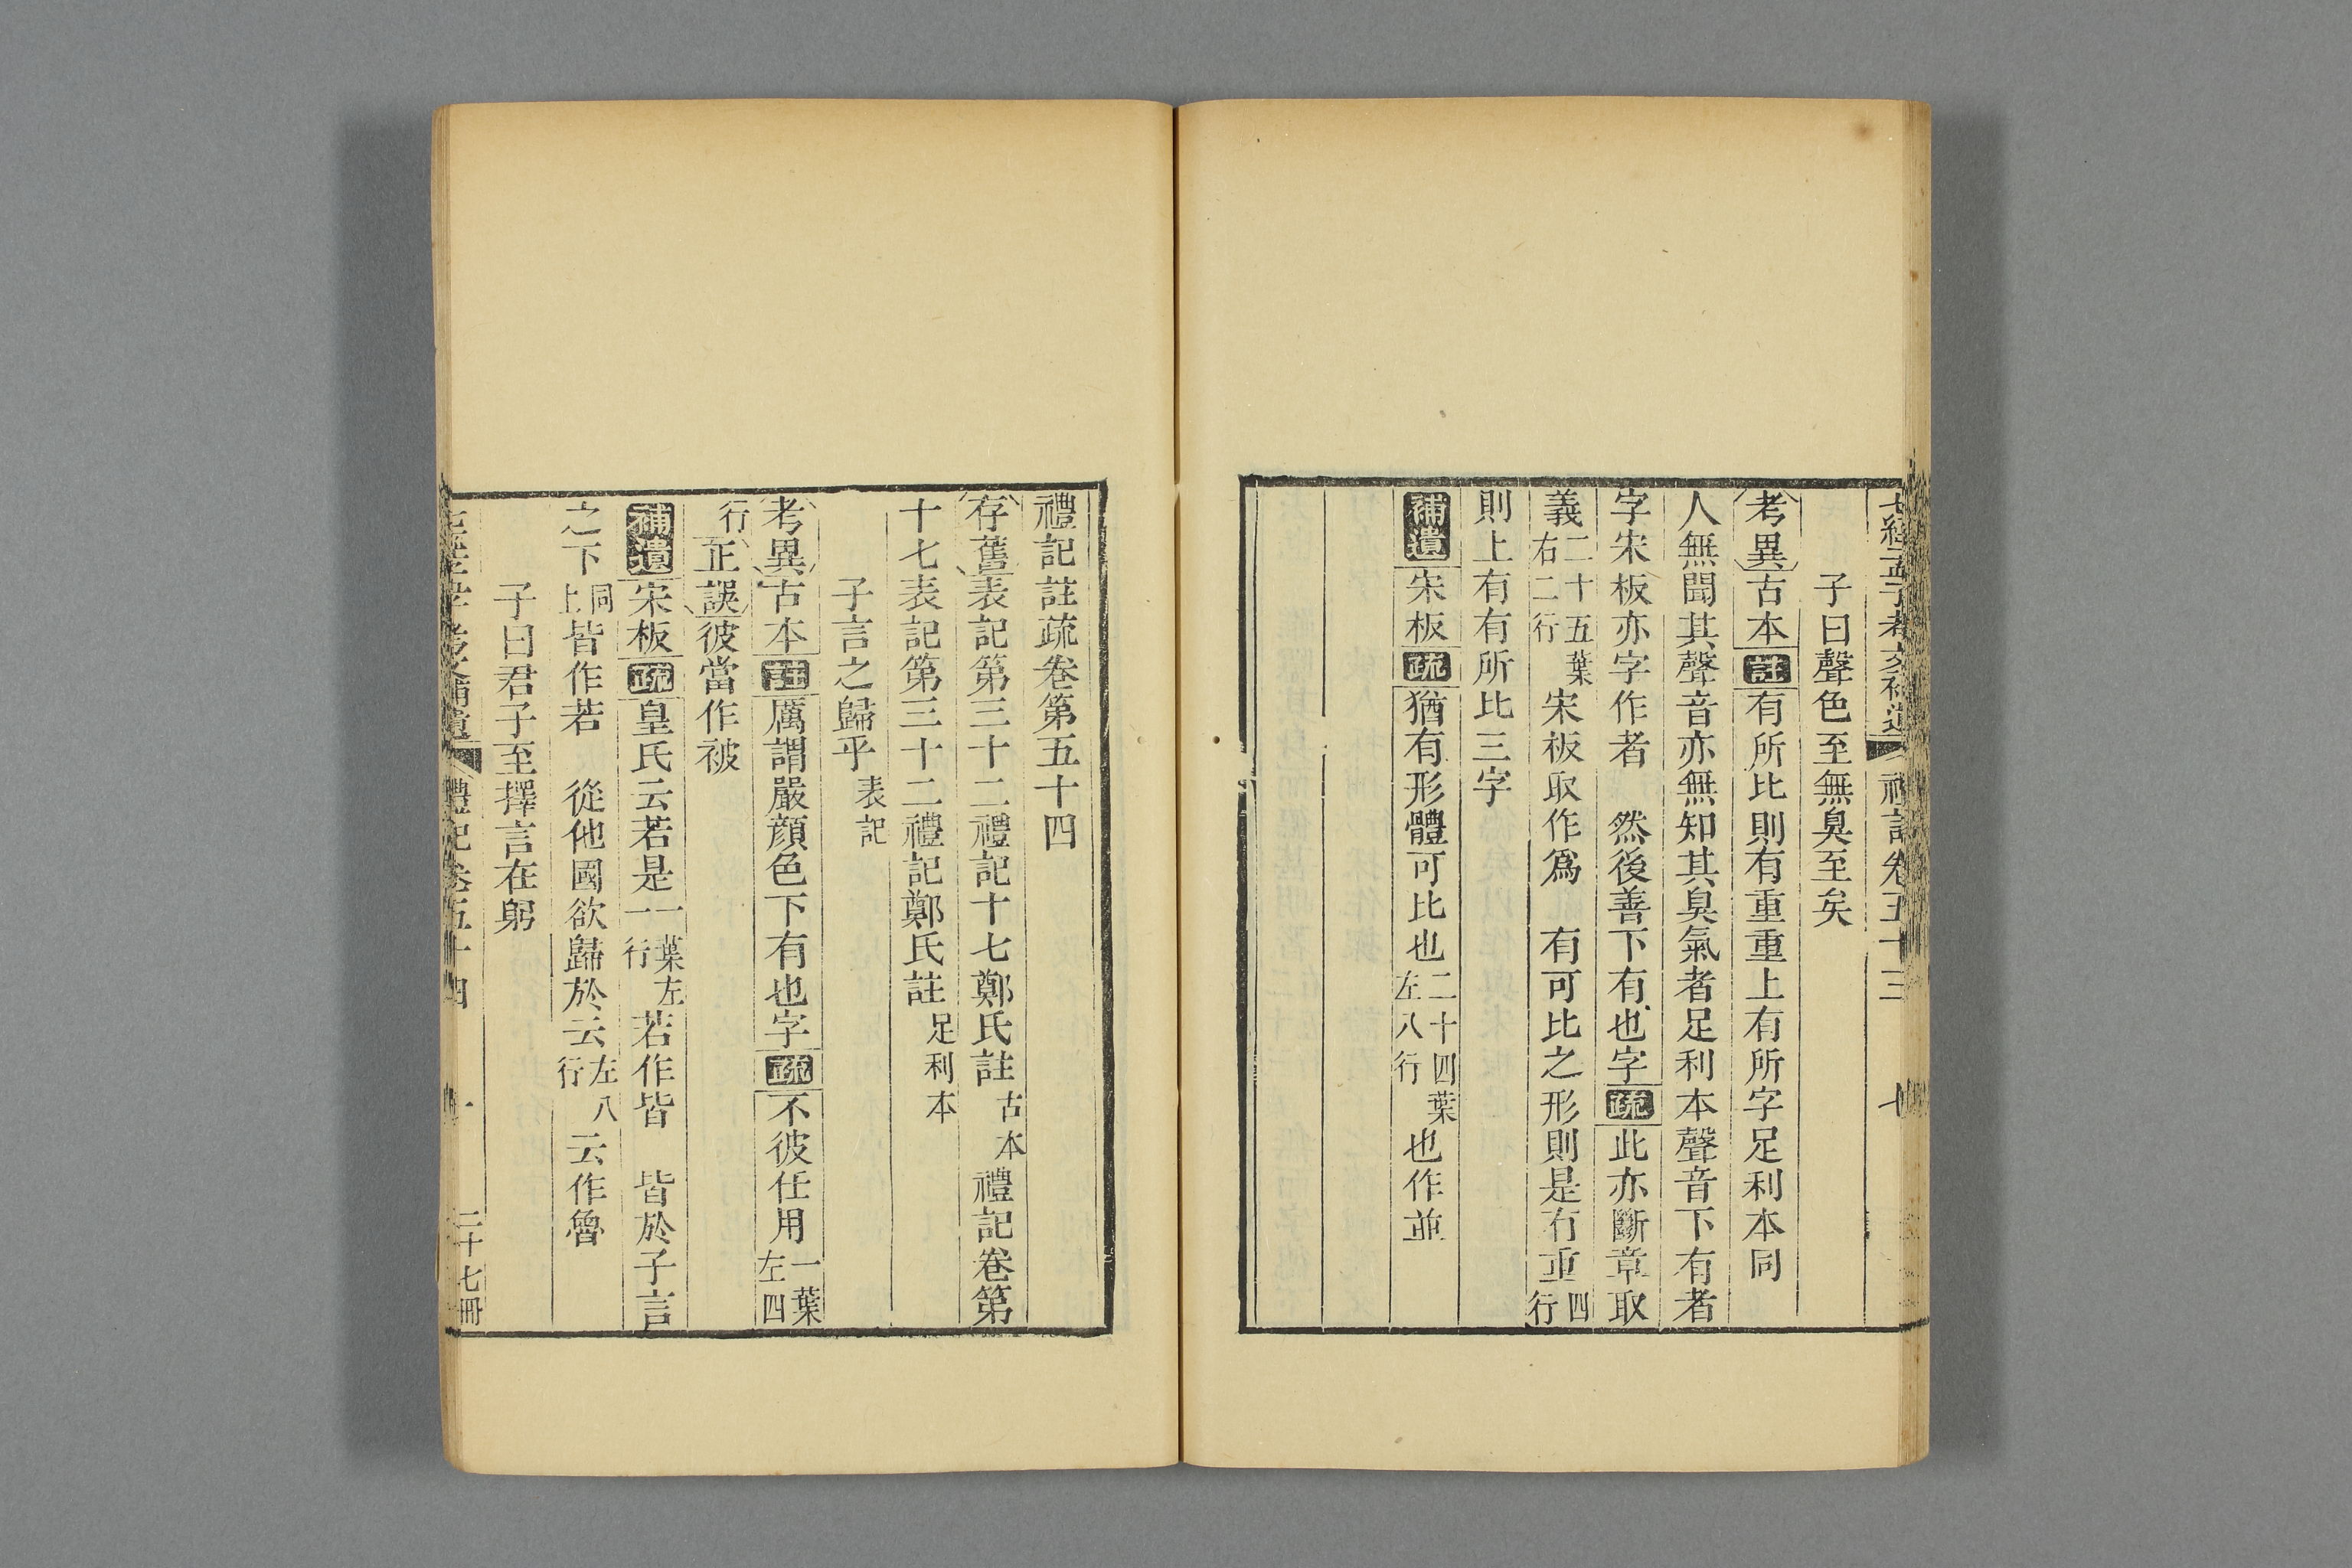 七經孟子考文補遺 禮記卷五十三 七
子曰聲色至無臭至矣
考異古本註有所比則有重重上有所字足利本同
人無聞其聲音亦無知其臭氣者足利本聲音下有者
字宋板亦字作者 然後善下有也字疏此亦斷章取
義二十五葉右二行宋板取作爲 有可比之形則是有重四行
則上有有所比三字
補遺宋板疏猶有形體可比也二十四葉左八行也作並
禮記註疏卷第五十四
存舊表記第三十二禮記十七鄭氏註古本禮記卷第
十七表記第三十二禮記鄭氏註足利本
子言之歸乎表記
考異古本註厲謂嚴顔色下有也字疏不彼任用一葉左四
行正誤彼當作被
補遺宋板疏皇氏云若是一葉左一行若作皆 皆於子言
之下同上皆作若 從他國欲歸於云左八行云作魯
子曰君子至擇言在躬
七經孟子考文補遺 禮記卷五十四 一 二十七冊